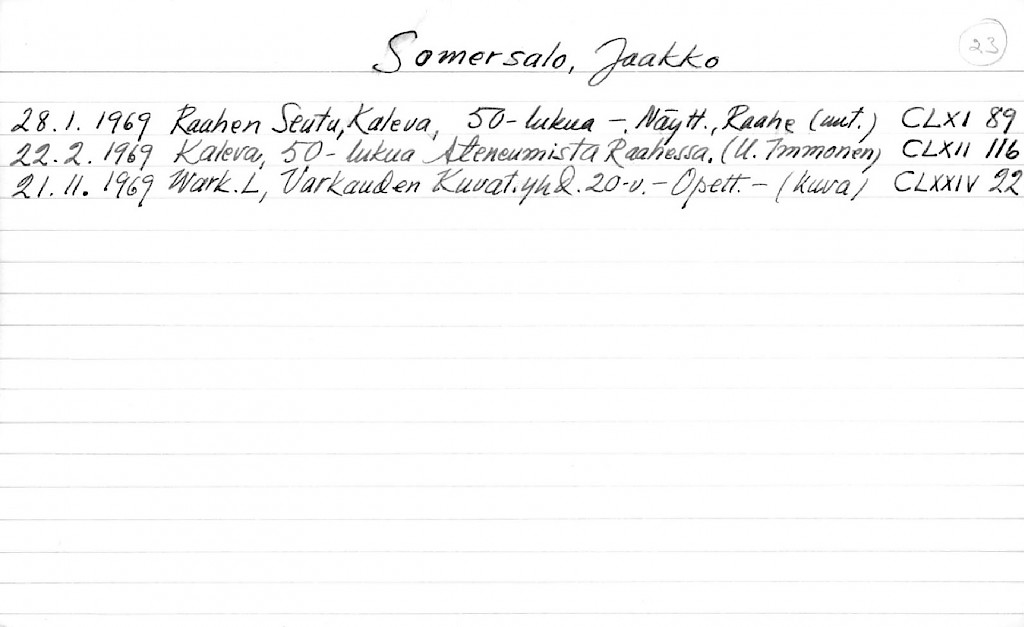 Somersalo, Jaakko
23
28.1.1969 Raahen Seutu, Kaleva, 50-lukua -. Näytt., Raahe (uut.) CLXI 89
22.2.1969 Kaleva, 50-lukua Ateneumista Raahessa. (U. Immonen) CLXII 116
21.11.1969 Wark.L, Varkauden Kuvat.yhd. 20-v. - Opett. - (kuva) CLXXIV 22